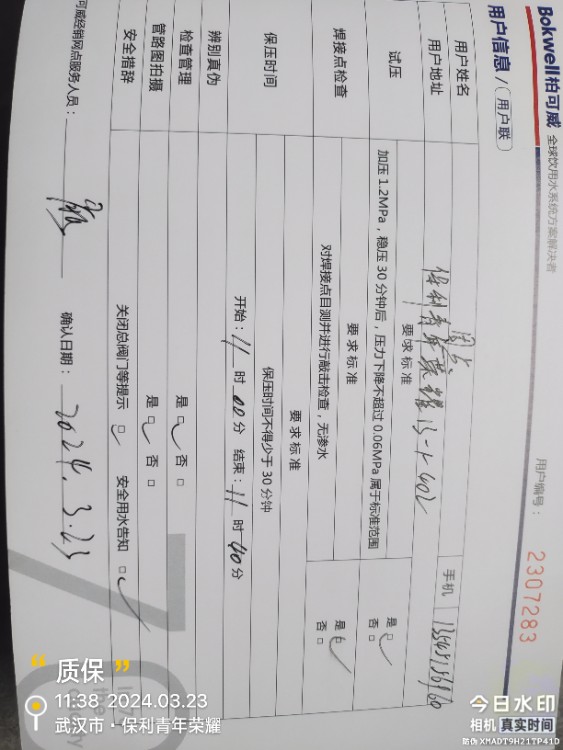 Bokwell柏可威 全球饮用水系统方案解决者
用户信息/(用户联)
用户编号: 2307283
用户姓名 周
手机
用户地址 保利青年荣耀13-1-402
试压
要求标准
加压1.2MPa,稳压30分钟后,压力下降不超过0.06MPa属于标准范围
是□ 否□
焊接点检查
要求标准
对焊接点目测并进行敲击检查,无渗水
是□ 否□
保压时间
要求标准
保压时间不得少于30分钟
开始:11时00分 结束:11时40分
辨别真伪
检查管理
是□ 否□
管路图拍摄
是□ 否□
安全措辞
关闭总阀门等提示□ 安全用水告知□
可威经销网点服务人员:
确认日期: 2024.3.23
质保
11:38 2024.03.23
武汉市·保利青年荣耀
今日水印
相机 真实时间
防伪 XMADT9H21TP41D